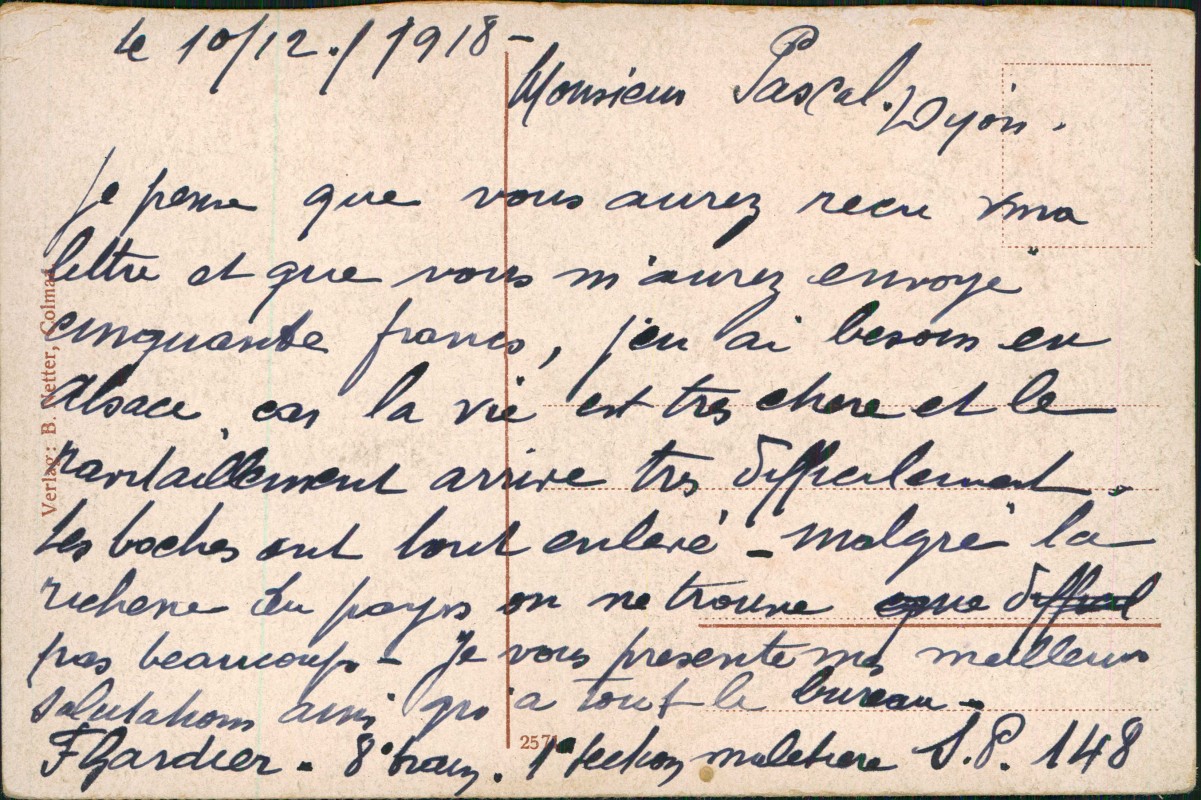 le 10/12./1918 -
Monsieur Pascal. Lyon.
Je pense que vous aurez recu ma
lettre et que vous m'aurez envoyé
cinquante francs, j'en ai besoin en
Alsace car la vie est tres chere et le
ravitaillement arrive tres difficilement.
Les boches ont tout enlevé - malgré la
richesse du pays on ne trouve que diffficil
pas beaucoup - Je vous presente mes meilleurs
salutations ainsi qu'a tout le bureau -
F Gardier - 8° train. 1e section muletiere S.P. 148
Verlag: B. Netter, Colmar
2571